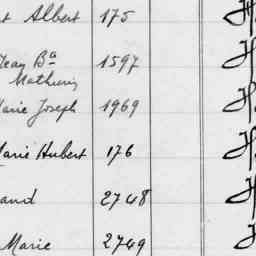 Albert 175
Jean Ba 1597
Mathurin
Marie Joseph 1969
Marie Hubert 176
and 2748
Marie 2749